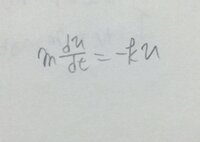 m du/dt = -ku